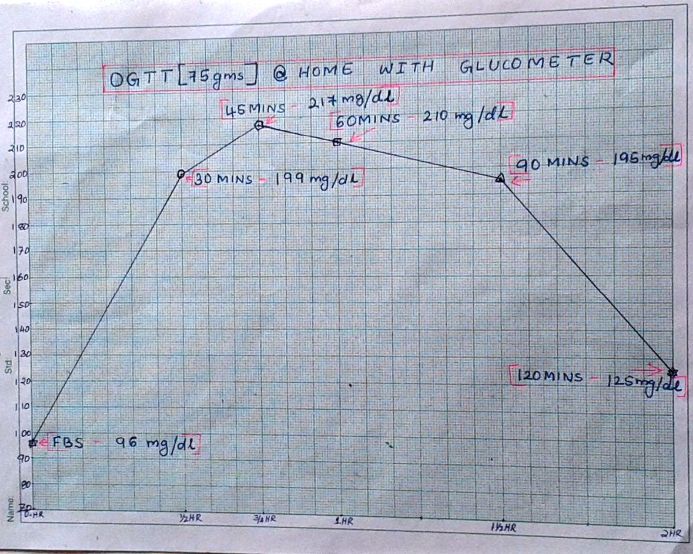 OGTT [75gms] @ HOME WITH GLUCOMETER
230
45MINS - 217mg/dl
220
60MINS - 210 mg/dl
210
90 MINS - 195mg/dl
200
30 MINS - 199 mg/dl
190
180
170
160
150
140
130
120MINS - 125mg/dl
120
110
100
FBS - 96 mg/dl
90
80
70
0-HR
1/2 HR
3/4 HR
1 HR
1 1/2 HR
2 HR
School:
Sec:
Std:
Name: